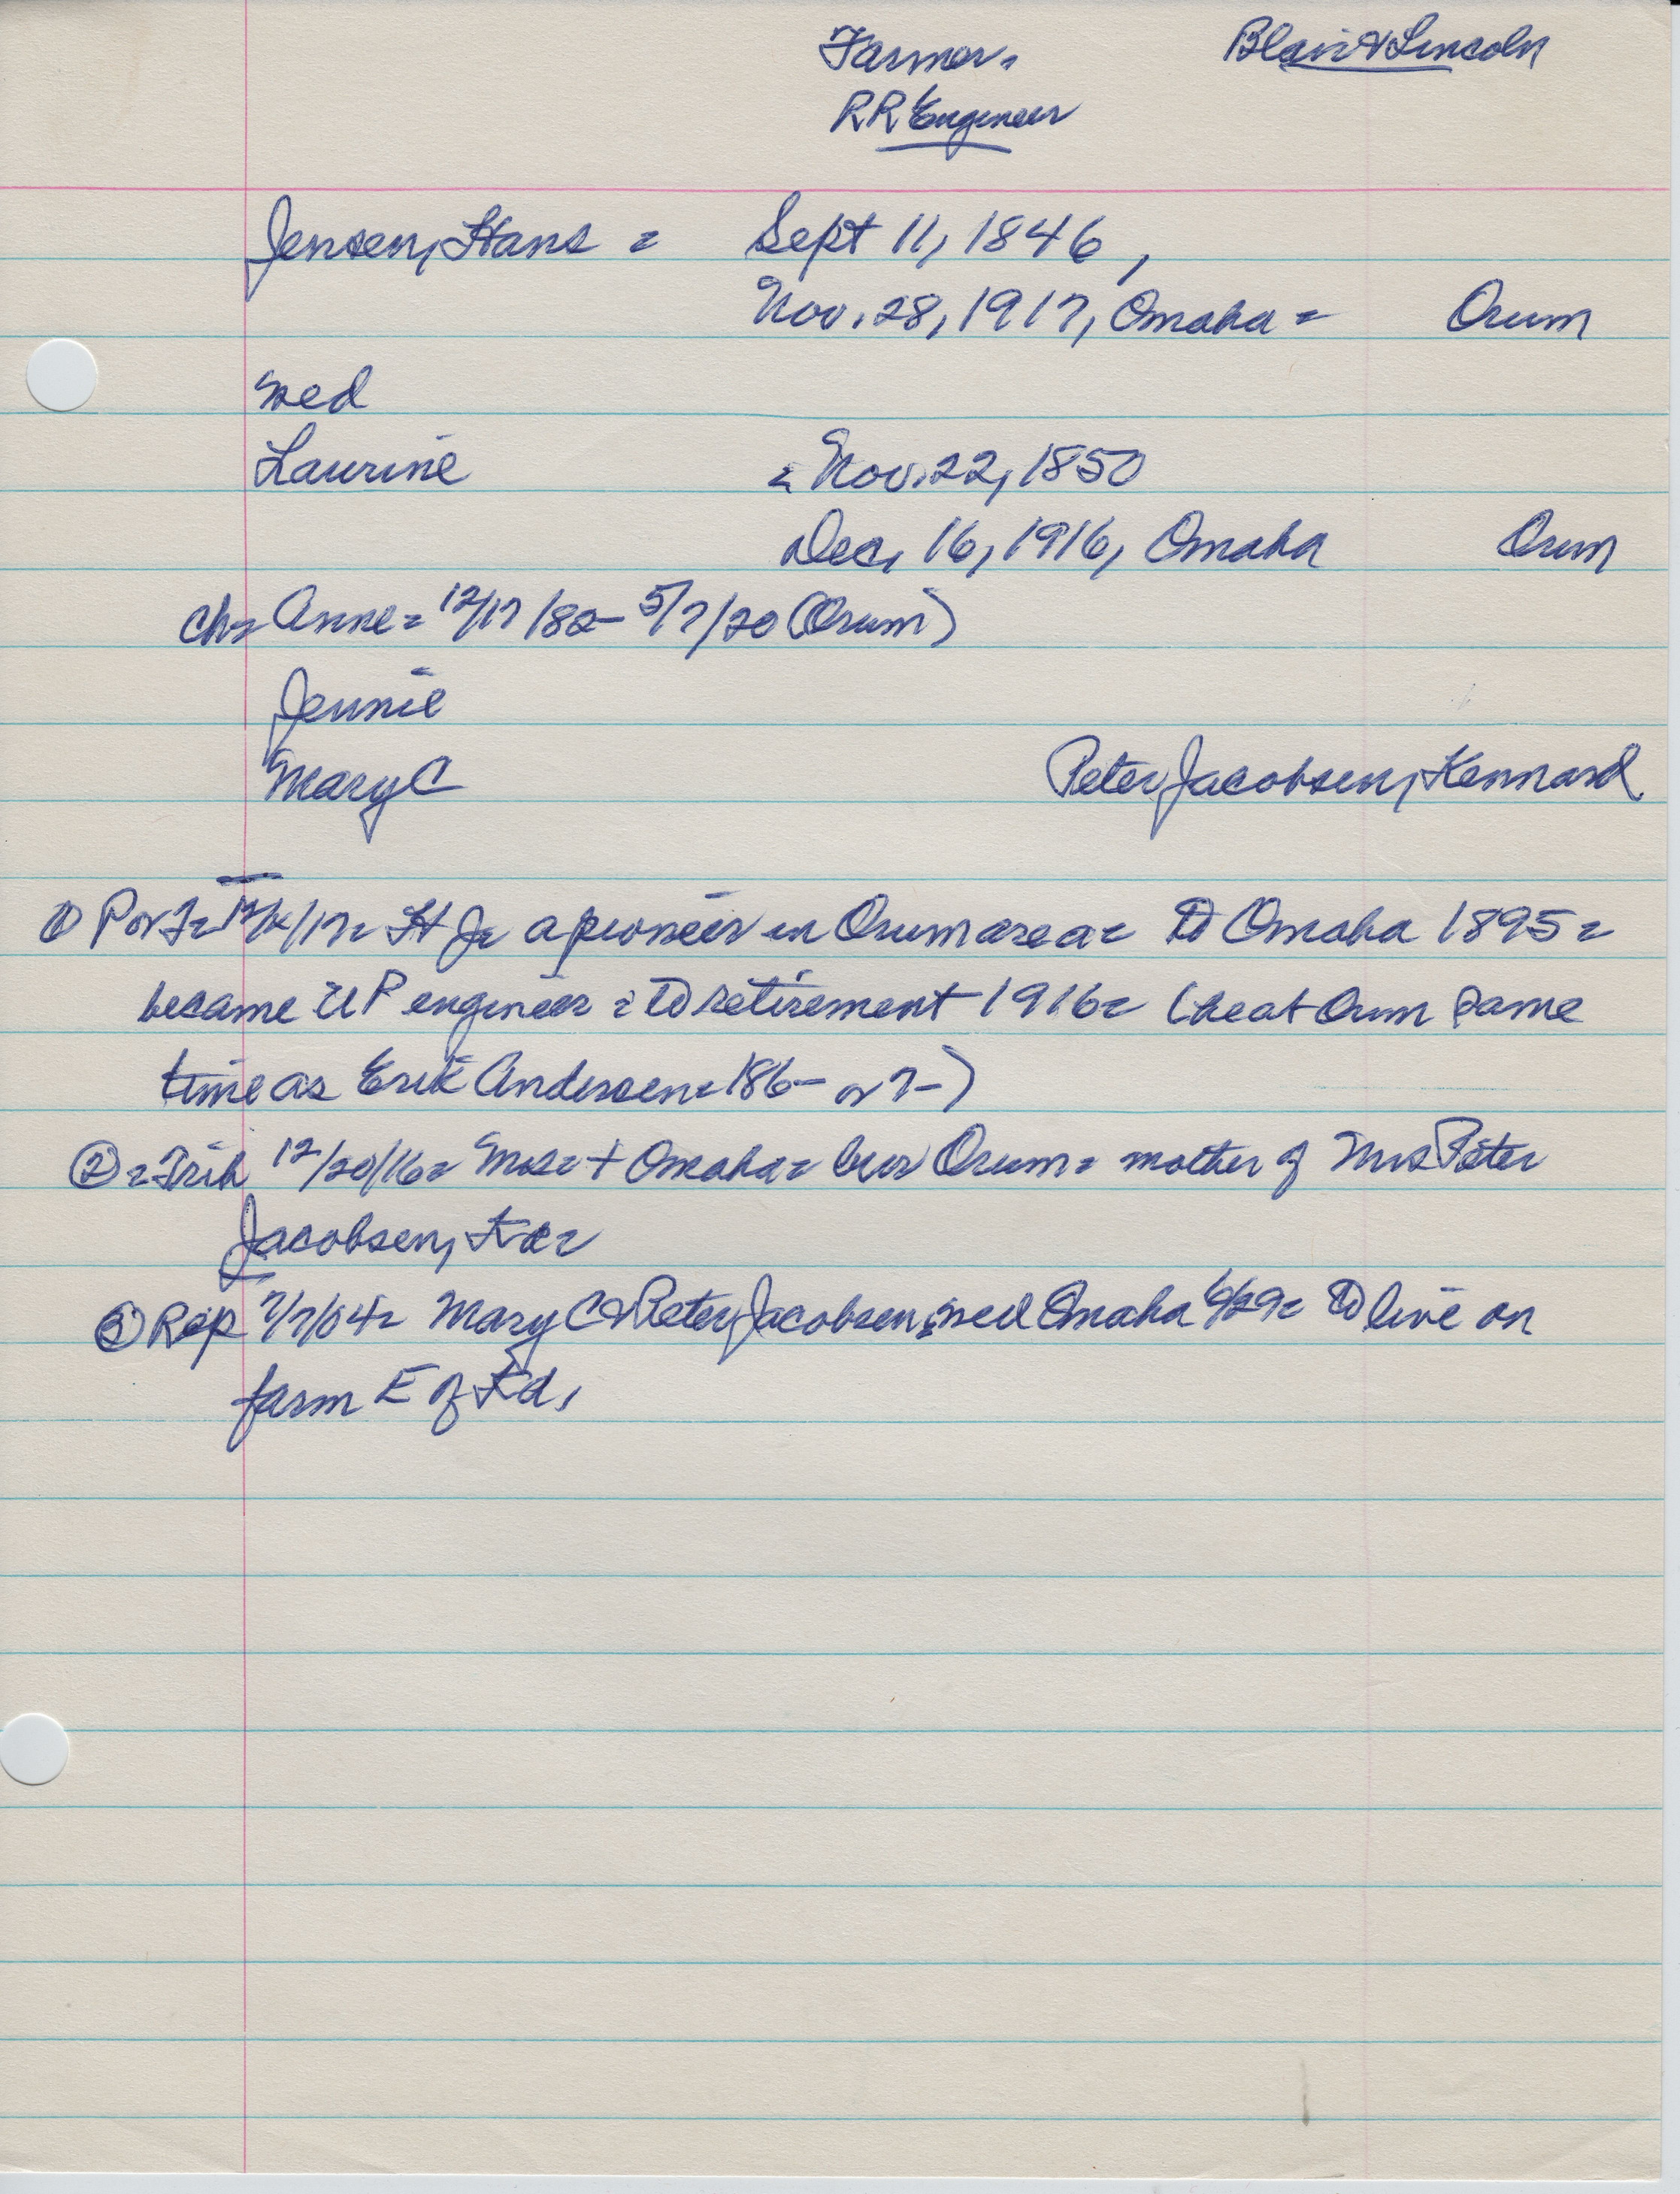 Farmer = Blair & Lincoln
RR Engineer
Jensen, Hans = Sept 11, 1846,
Nov. 28, 1917, Omaha = Orum
med
Laurine = Nov. 22, 1850
Dec, 16, 1916, Omaha Orum
ch = Anne = 12/17/82 - 5/7/20 (Orum)
Jennie
Mary C Peter Jacobsen, Kennard
① P or T = /17 = H J = a pioneer in Orum area = To Omaha 1895 =
became UP engineer = To retirement 1916 = (he at Orum same
time as Erik Andersen = 186- or 7-)
② = Trib 12/20/16 = Mrs = + Omaha = bur Orum = mother of Mrs Peter
Jacobsen,
③ Rep 7/7/04 = Mary C & Peter Jacobsen, med Omaha 6/29 = To live on
farm E of Kd,